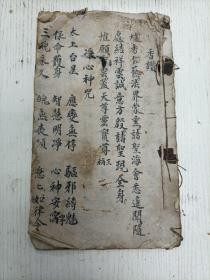 香讚
爐香乍热法界蒙熏諸聖海會悉遥聞隨
處結祥雲誠意方殷諸聖现全身
惟願雲蓋天尊雲寳尊王
淨心神咒
太上台星 應變無停 驅邪縛魅
保命護身 智慧明净 心神安寧
三魂永久 魄無丧傾 急急如律令